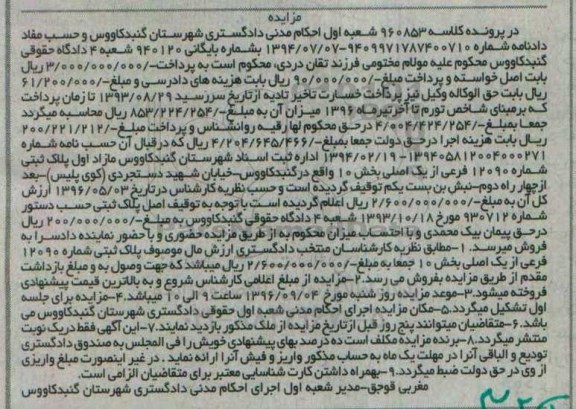 مزایده
در پرونده کلاسه ۹۶۰۸۵۳ شعبه اول احکام مدنی دادگستری شهرستان گنبدکاووس و حسب مفاد
دادنامه شماره ۹۴۰۹۹۷۱۷۸۷۴۰۰۷۱۰-۱۳۹۴/۰۷/۰۷ بشماره بایگانی ۹۴۰۱۲۰ شعبه ۴ دادگاه حقوقی
گنبدکاووس محکوم علیه مولام مختومی فرزند تقان دردی، محکوم است به پرداخت-/۳/۰۰۰/۰۰۰/۰۰۰ ریال
بابت اصل خواسته و پرداخت مبلغ-/۹۰/۰۰۰/۰۰۰ ریال بابت هزینه های دادرسی و مبلغ-/۶۱/۲۰۰/۰۰۰
ریال بابت حق الوکاله وکیل نیز پرداخت خسارت تأخیر تادیه ازتاریخ سررسید ۱۳۹۳/۰۸/۲۹ تا زمان پرداخت
که برمبنای شاخص تورم تا آخرتیرماه ۱۳۹۶ میزان آن به مبلغ-/۸۵۳/۲۲۴/۲۵۴ ریال محاسبه میگردد
جمعا بمبلغ-/۴/۰۰۴/۴۲۴/۲۵۴ درحق محکوم لها رقیه روانشناس و پرداخت مبلغ-/۲۰۰/۲۲۱/۲۱۲
ریال بابت هزینه اجرا درحق دولت جمعا بمبلغ-/۴/۲۰۴/۶۴۵/۴۶۶ ریال که درقبال آن حسب نامه شماره
۱۳۹۴۰۵۸۱۲۰۰۴۰۰۰۲۷۱-۱۳۹۴/۰۲/۱۹ اداره ثبت اسناد شهرستان گنبدکاووس مازاد اول پلاک ثبتی
شماره ۱۲۰۹۰ فرعی از یک اصلی بخش ۱۰ واقع درگنبدکاووس-خیابان شهید دستجردی (کوی پلیس)-بعد
ازچهار راه دوم-نبش بن بست یکم توقیف گردیده است و حسب نظریه کارشناس درتاریخ ۱۳۹۶/۰۵/۰۳ ارزش
کل آن به مبلغ-/۲/۶۰۰/۰۰۰/۰۰۰ ریال اعلام گردیده است با توجه به توقیف اصل پلاک ثبتی حسب دستور
شماره ۹۳۰۷۱۲ مورخ ۱۳۹۳/۱۰/۱۸ شعبه ۴ دادگاه حقوقی گنبدکاووس به مبلغ-/۲۰۰/۰۰۰/۰۰۰ ریال
درحق پیمان بیک محمدی و با احتساب میزان محکوم به از طریق مزایده حضوری و با حضور نماینده دادسرا به
فروش میرسد. ۱-مطابق نظریه کارشناسان منتخب دادگستری ارزش مال موصوف پلاک ثبتی شماره ۱۲۰۹۰
فرعی از یک اصلی بخش ۱۰ جمعا به مبلغ-/۲/۶۰۰/۰۰۰/۰۰۰ ریال میباشد که جهت وصول به و مبلغ بازداشت
مقدم از طریق مزایده بفروش می رسد. ۲-مزایده از مبلغ اعلامی کارشناس شروع و به بالاترین قیمت پیشنهادی
فروخته میشود. ۳-موعد مزایده روز شنبه مورخ ۱۳۹۶/۰۹/۰۴ ساعت ۹ الی ۱۰ میباشد. ۴-مزایده برای جلسه
اول تشکیل میگردد. ۵-مکان مزایده اجرای احکام مدنی شعبه اول حقوقی دادگستری شهرستان گنبدکاووس می
باشد. ۶-متقاضیان میتوانند پنج روز قبل ازتاریخ مزایده از ملک مذکور بازدید نمایند. ۷-این آگهی فقط دریک نوبت
منتشر میگردد. ۸-برنده مزایده مکلف است ده درصد بهای پیشنهادی خویش را فی المجلس به صندوق دادگستری
تودیع و الباقی آنرا در مهلت یک ماه به حساب مذکور واریز و فیش آنرا ارائه نماید. در غیر اینصورت مبلغ واریزی
از وی در حق دولت ضبط میگردد. ۹-بهمراه داشتن کارت شناسایی معتبر برای متقاضیان الزامی است.
مغربی قوجق-مدیر شعبه اول اجرای احکام مدنی دادگستری شهرستان گنبدکاووس